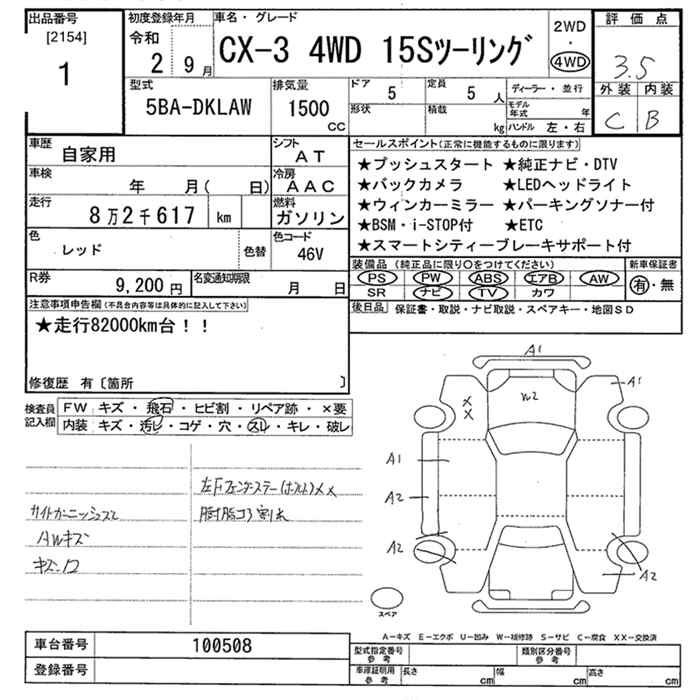 出品番号 初度登録年月 車名・グレード 2WD ・ 4WD 評価点
[2154] 令和 2 9月 CX-3 4WD 15Sツーリング 3.5
1 型式 排気量 ドア 5 定員 5人 ディーラー・並行 外装 内装
5BA-DKLAW 1500 CC 形状 積載 kg モデル年式 年 ハンドル 左・右 C B
車歴 自家用 シフト AT セールスポイント(正常に機能するものに限ります)
車検 年 月( 日) 冷房 AAC ★プッシュスタート ★純正ナビ・DTV
走行 8万2千617 km 燃料 ガソリン ★バックカメラ ★LEDヘッドライト
★ウィンカーミラー ★パーキングソナー付
色 レッド 色替 色コード 46V ★BSM・i-STOP付 ★ETC
★スマートシティーブレーキサポート付
R券 9,200円 名変通知期限 月 日 装備品(純正品に限り○をつけてください) 新車保証書
PS PW ABS エアB AW 有・無
SR ナビ TV カワ
注意事項申告欄(不具合内容等は具体的に記入して下さい) 後日品 保証書・取説・ナビ取説・スペアキー・地図SD
★走行82000km台!!
修復歴 有〔箇所 〕
検査員記入欄 FW キズ・飛石・ヒビ割・リペア跡・×要
内装 キズ・汚レ・コゲ・穴・スレ・キレ・破レ
A1
A1
W2
X
X
A1
A2
A2
A2
AWキズ
スペア
A-キズ E-エクボ U-凹み W-補修跡 S-サビ C-腐食 XX-交換済
車台番号 100508 型式指定番号 参考 類別区分番号 参考
登録番号 車庫証明用 参考 長さ cm 幅 cm 高さ cm